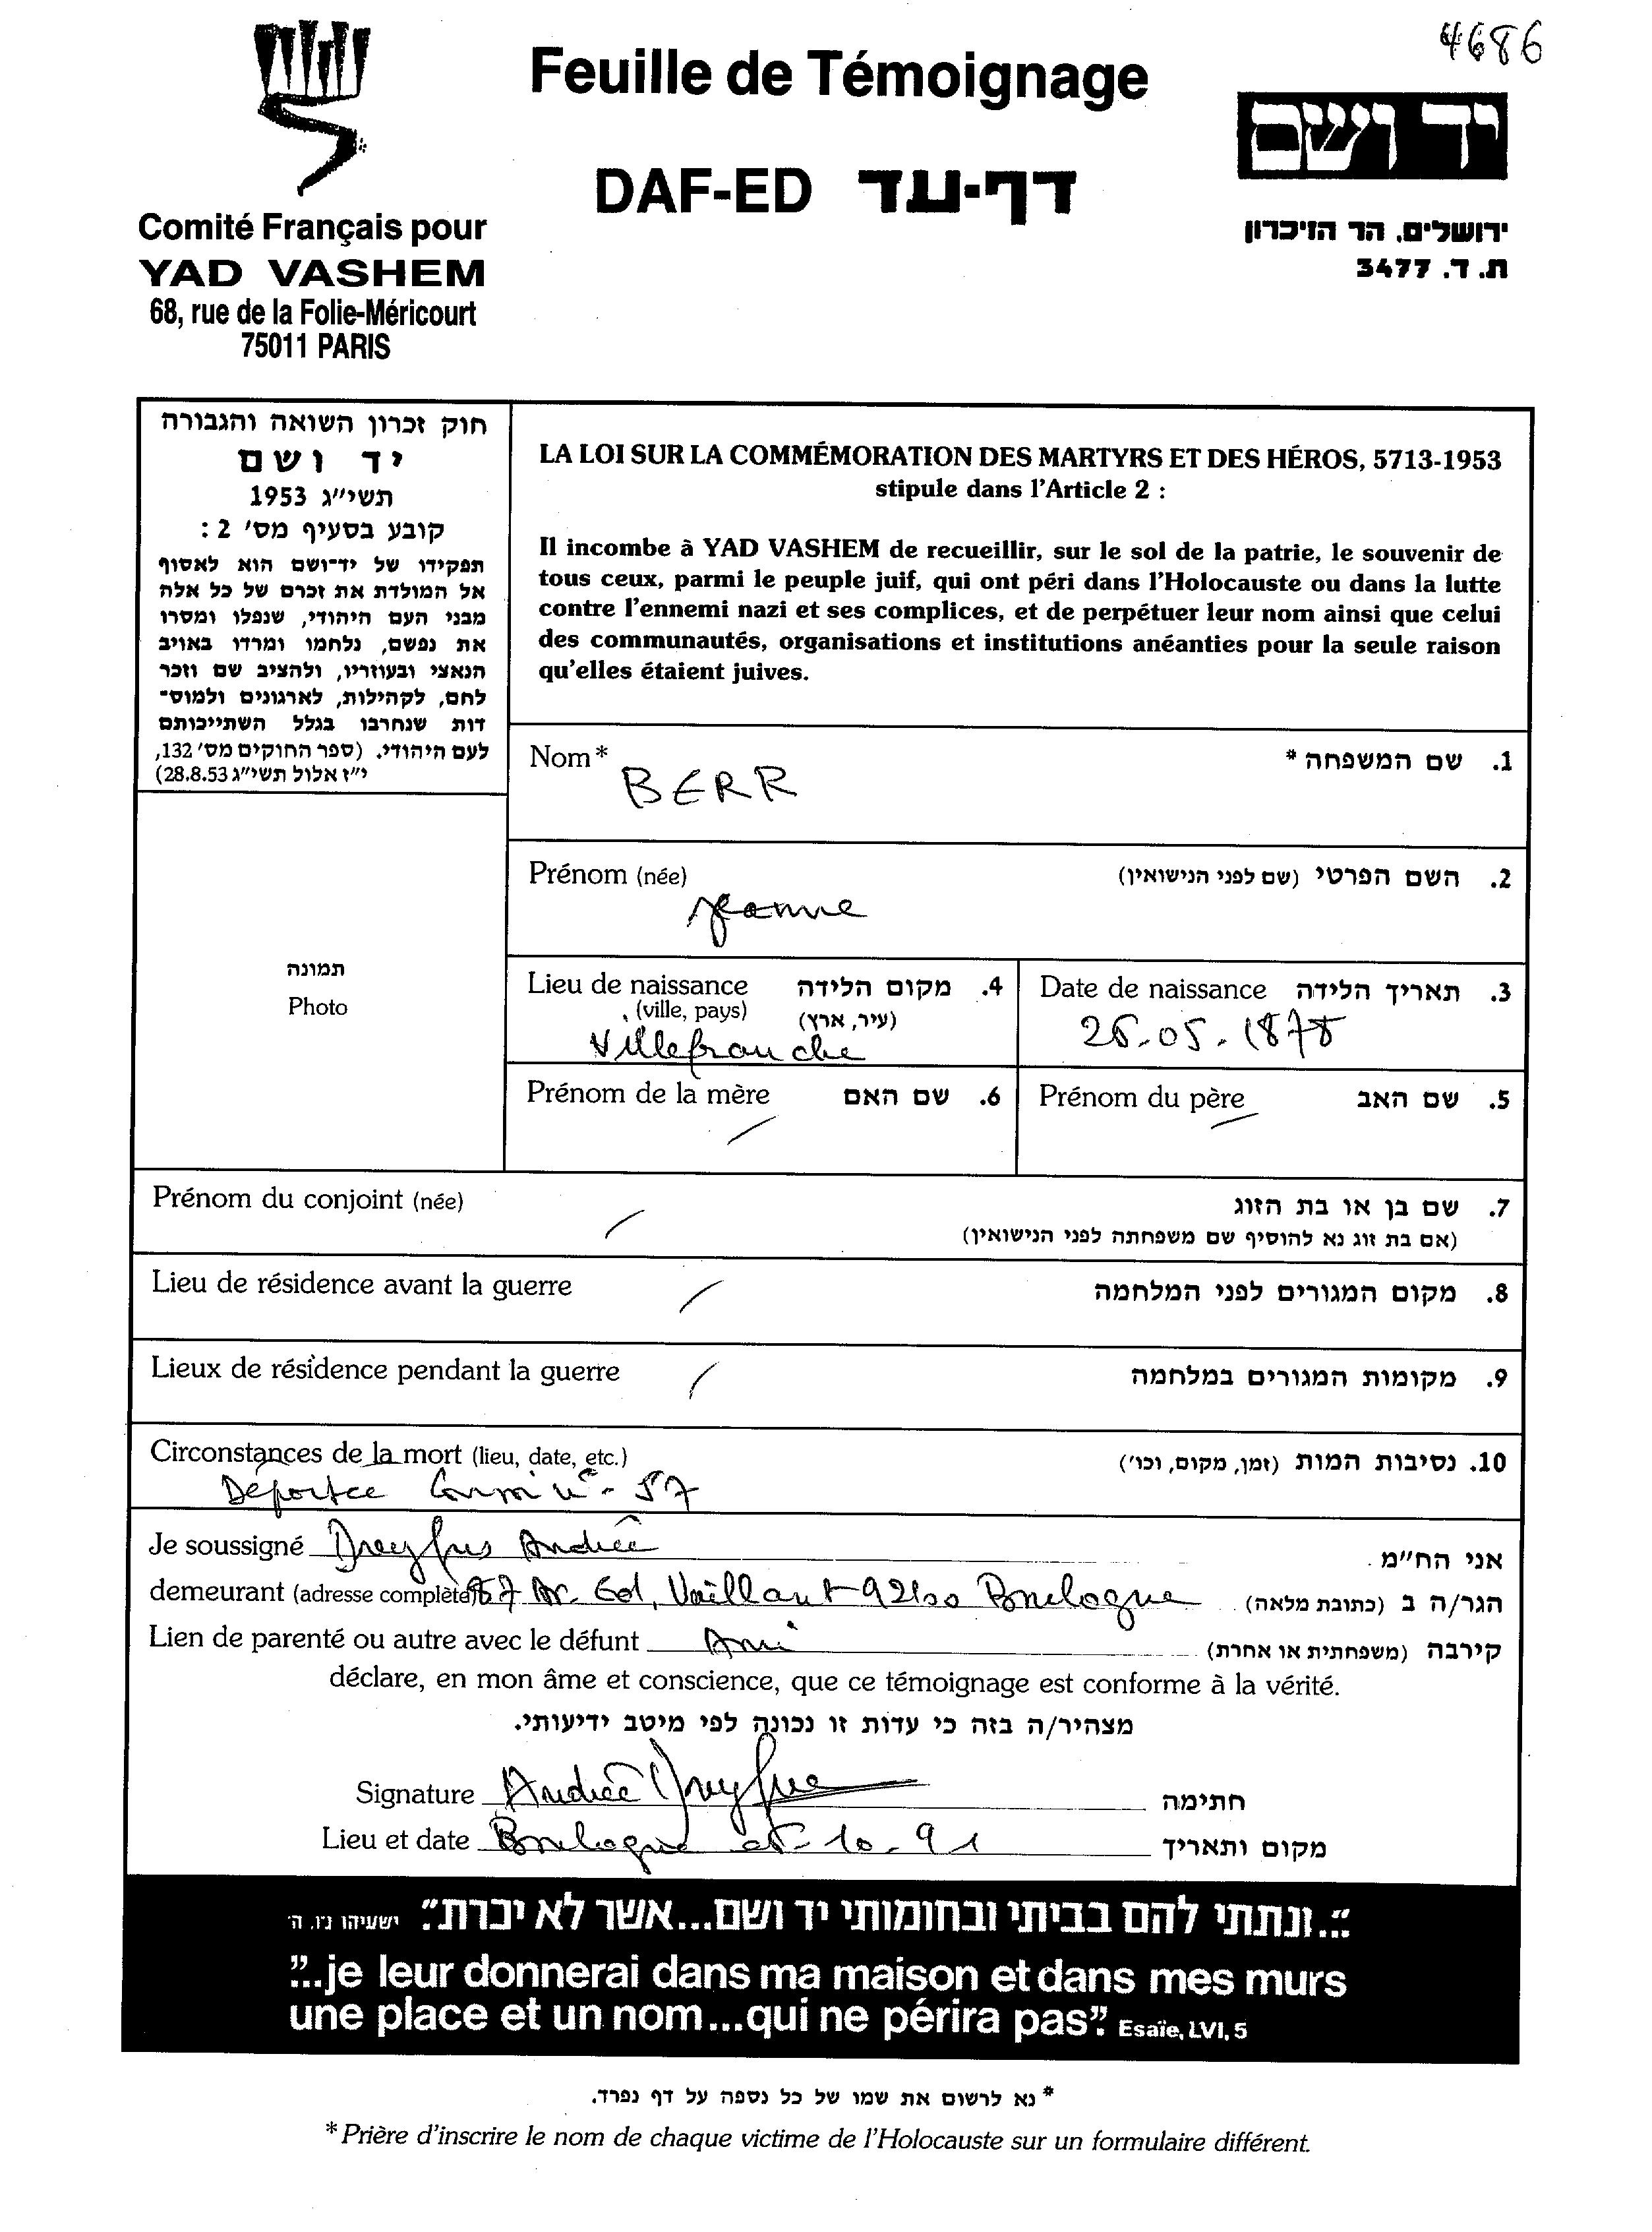 4686
Feuille de Témoignage
DAF-ED דף-עד
Comité Français pour
YAD VASHEM
68, rue de la Folie-Méricourt
75011 PARIS
יד ושם
ירושלים, הר הזיכרון
ת. ד. 3477
חוק זכרון השואה והגבורה
יד ושם
תשי״ג 1953
קובע בסעיף מס׳ 2 :
תפקידו של יד־ושם הוא לאסוף
אל המולדת את זכרם של כל אלה
מבני העם היהודי, שנפלו ומסרו
את נפשם, נלחמו ומרדו באויב
הנאצי ובעוזריו, ולהציב שם וזכר
להם, לקהילות, לארגונים ולמוס־
דות שנחרבו בגלל השתייכותם
לעם היהודי. (ספר החוקים מס׳ 132,
י״ז אלול תשי״ג 28.8.53)
LA LOI SUR LA COMMÉMORATION DES MARTYRS ET DES HÉROS, 5713-1953
stipule dans l'Article 2 :
Il incombe à YAD VASHEM de recueillir, sur le sol de la patrie, le souvenir de
tous ceux, parmi le peuple juif, qui ont péri dans l'Holocauste ou dans la lutte
contre l'ennemi nazi et ses complices, et de perpétuer leur nom ainsi que celui
des communautés, organisations et institutions anéanties pour la seule raison
qu'elles étaient juives.
Nom* 1. שם המשפחה *
BERR
Prénom (née) 2. השם הפרטי (שם לפני הנישואין)
Jeanne
תמונה
Photo
Lieu de naissance 4. מקום הלידה
(ville, pays) (עיר, ארץ)
Villefranche
Date de naissance 3. תאריך הלידה
.05.1878
Prénom de la mère 6. שם האם
Prénom du père 5. שם האב
Prénom du conjoint (née) 7. שם בן או בת הזוג
(אם בת זוג נא להוסיף שם משפחתה לפני הנישואין)
Lieu de résidence avant la guerre 8. מקום המגורים לפני המלחמה
Lieux de résidence pendant la guerre 9. מקומות המגורים במלחמה
Circonstances de la mort (lieu, date, etc.) 10. נסיבות המות (זמן, מקום, וכו׳)
Déportée 57
Je soussigné Dreyfus Andrée אני הח״מ
demeurant (adresse complète) Av. Ed. Vaillant 92100 Boulogne הגר/ה ב (כתובת מלאה)
Lien de parenté ou autre avec le défunt Ami קירבה (משפחתית או אחרת)
déclare, en mon âme et conscience, que ce témoignage est conforme à la vérité.
מצהיר/ה בזה כי עדות זו נכונה לפי מיטב ידיעותי.
Signature Andrée Dreyfus חתימה
Lieu et date Boulogne 10.91 מקום ותאריך
״...ונתתי להם בביתי ובחומותי יד ושם...אשר לא יכרת״. ישעיהו נ״ו, ה׳
"...je leur donnerai dans ma maison et dans mes murs
une place et un nom...qui ne périra pas". Esaïe, LVI, 5
* נא לרשום את שמו של כל נספה על דף נפרד.
* Prière d'inscrire le nom de chaque victime de l'Holocauste sur un formulaire différent.